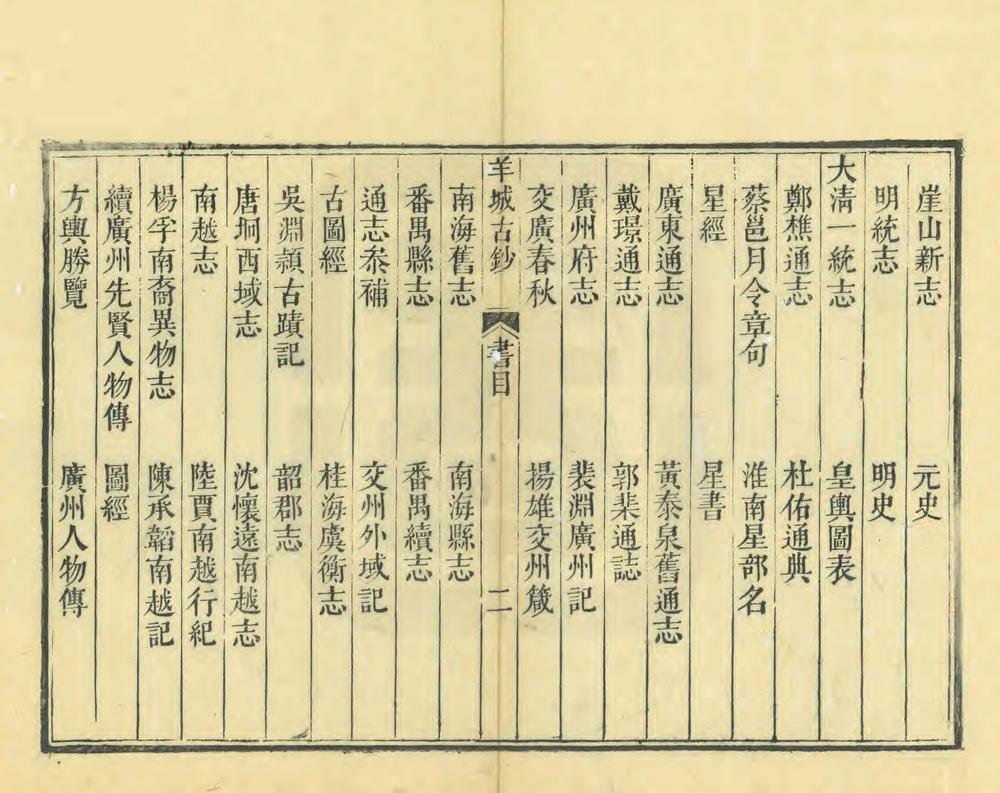 崖山新志　元史
明統志　明史
大淸一統志　皇輿圖表
鄭樵通志　杜佑通典
蔡邕月令章句　淮南星部名
星經　星書
廣東通志　黃泰泉舊通志
戴璟通志　郭棐通誌
廣州府志　裴淵廣州記
交廣春秋　揚雄交州箴
羊城古鈔　書目　二
南海舊志　南海縣志
番禺縣志　番禺續志
通志叅補　交州外域記
古圖經　桂海虞衡志
吳淵潁古蹟記　韶郡志
唐坰西域志　沈懷遠南越志
南越志　陸賈南越行紀
楊孚南裔異物志　陳承韜南越記
續廣州先賢人物傳　圖經
方輿勝覽　廣州人物傳